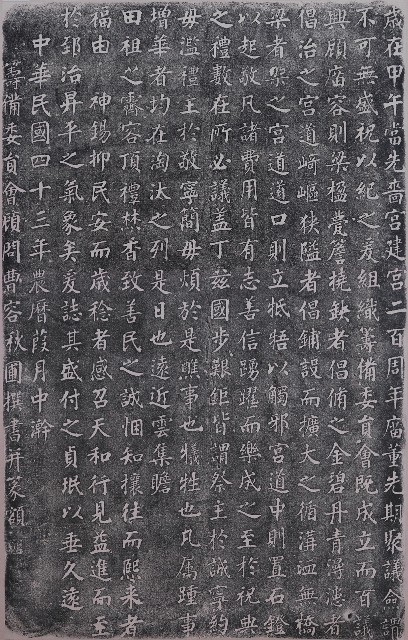 歲在甲午當先嗇宮建宮二百周年廟董先期聚議僉謂
不可無盛祝以紀之爰組織籌備委員會既成立而百
興顧廟容則梁楹甍簷撓缺者倡脩之金碧丹青漫漶者
倡治之宮道崎嶇狹隘者倡鋪設而擴大之循溝洫無橋
梁者架之宮道道口則立牴牾以觸邪宮道中則置石鐙
以起敬凡諸費用皆有志善信踴躍而樂成之至於祝典
之禮數在所必議蓋丁茲國步艱鉅皆謂祭主於誠寧約
毋濫禮主於敬寧簡毋煩於是醮事也犧牲也凡属踵事
增華者均在淘汰之列是日也遠近雲集瞻
田祖之霱容頂禮焚香致善民之誠悃知攘往而熙來者
福由　神錫抑民安而歲稔者感召天和行見益進而至
於郅治昇平之氣象矣爰誌其盛付之貞珉以垂久遠
中華民國四十三年農曆葭月中澣
籌備委員會顧問曹容秋圃撰書并篆額